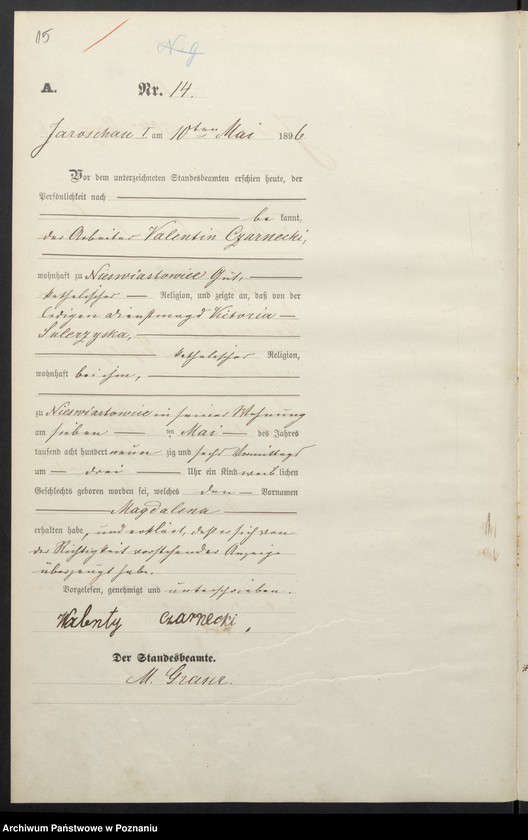 15
N. g
A. Nr. 14.
Jaroschau I am 10ten Mai 1896
Vor dem unterzeichneten Standesbeamten erschien heute, der
Persönlichkeit nach
be kannt,
der Arbeiter Valentin Czarnecki,
wohnhaft zu Nieswiastowice Gut,
katholischer Religion, und zeigte an, daß von der
ledigen Dienstmagd Victoria
Sulerzyska,
katholischer Religion,
wohnhaft bei ihm,
zu Nieswiastowice in seiner Wohnung
am sieben ten Mai des Jahres
tausend acht hundert neun zig und sechs Vormittags
um drei Uhr ein Kind weib lichen
Geschlechts geboren worden sei, welches den Vornamen
Magdalena
erhalten habe, und erklärt, daß er sich von
der Richtigkeit vorstehender Anzeige
überzeugt habe.
Vorgelesen, genehmigt und unterschrieben.
Walenty Czarnecki,
Der Standesbeamte.
M.
Archiwum Państwowe w Poznaniu